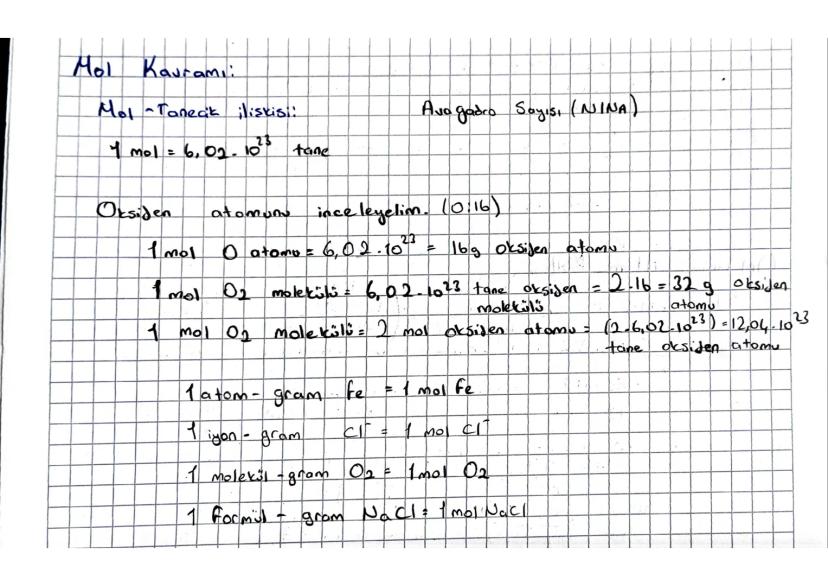 Mol Kavramı:
Mol-Tanecik ilişkisi: Avagadro Sayısı (N|NA)
1 mol = 6,02.10²³ tane
Oksijen atomunu inceleyelim. (O:16)
1 mol O atomu = 6,02.10²³ = 16g oksijen atomu
1 mol O2 molekülü = 6,02.10²³ tane oksijen molekülü = 2.16 = 32 g oksijen atomu
1 mol O2 molekülü = 2 mol oksijen atomu = (2.6,02.10²³) = 12,04.10²³ tane oksijen atomu
1 atom-gram Fe = 1 mol Fe
1 iyon-gram Cl⁻ = 1 mol Cl⁻
1 molekül-gram O2 = 1mol O2
1 formül-gram NaCl = 1 mol NaCl